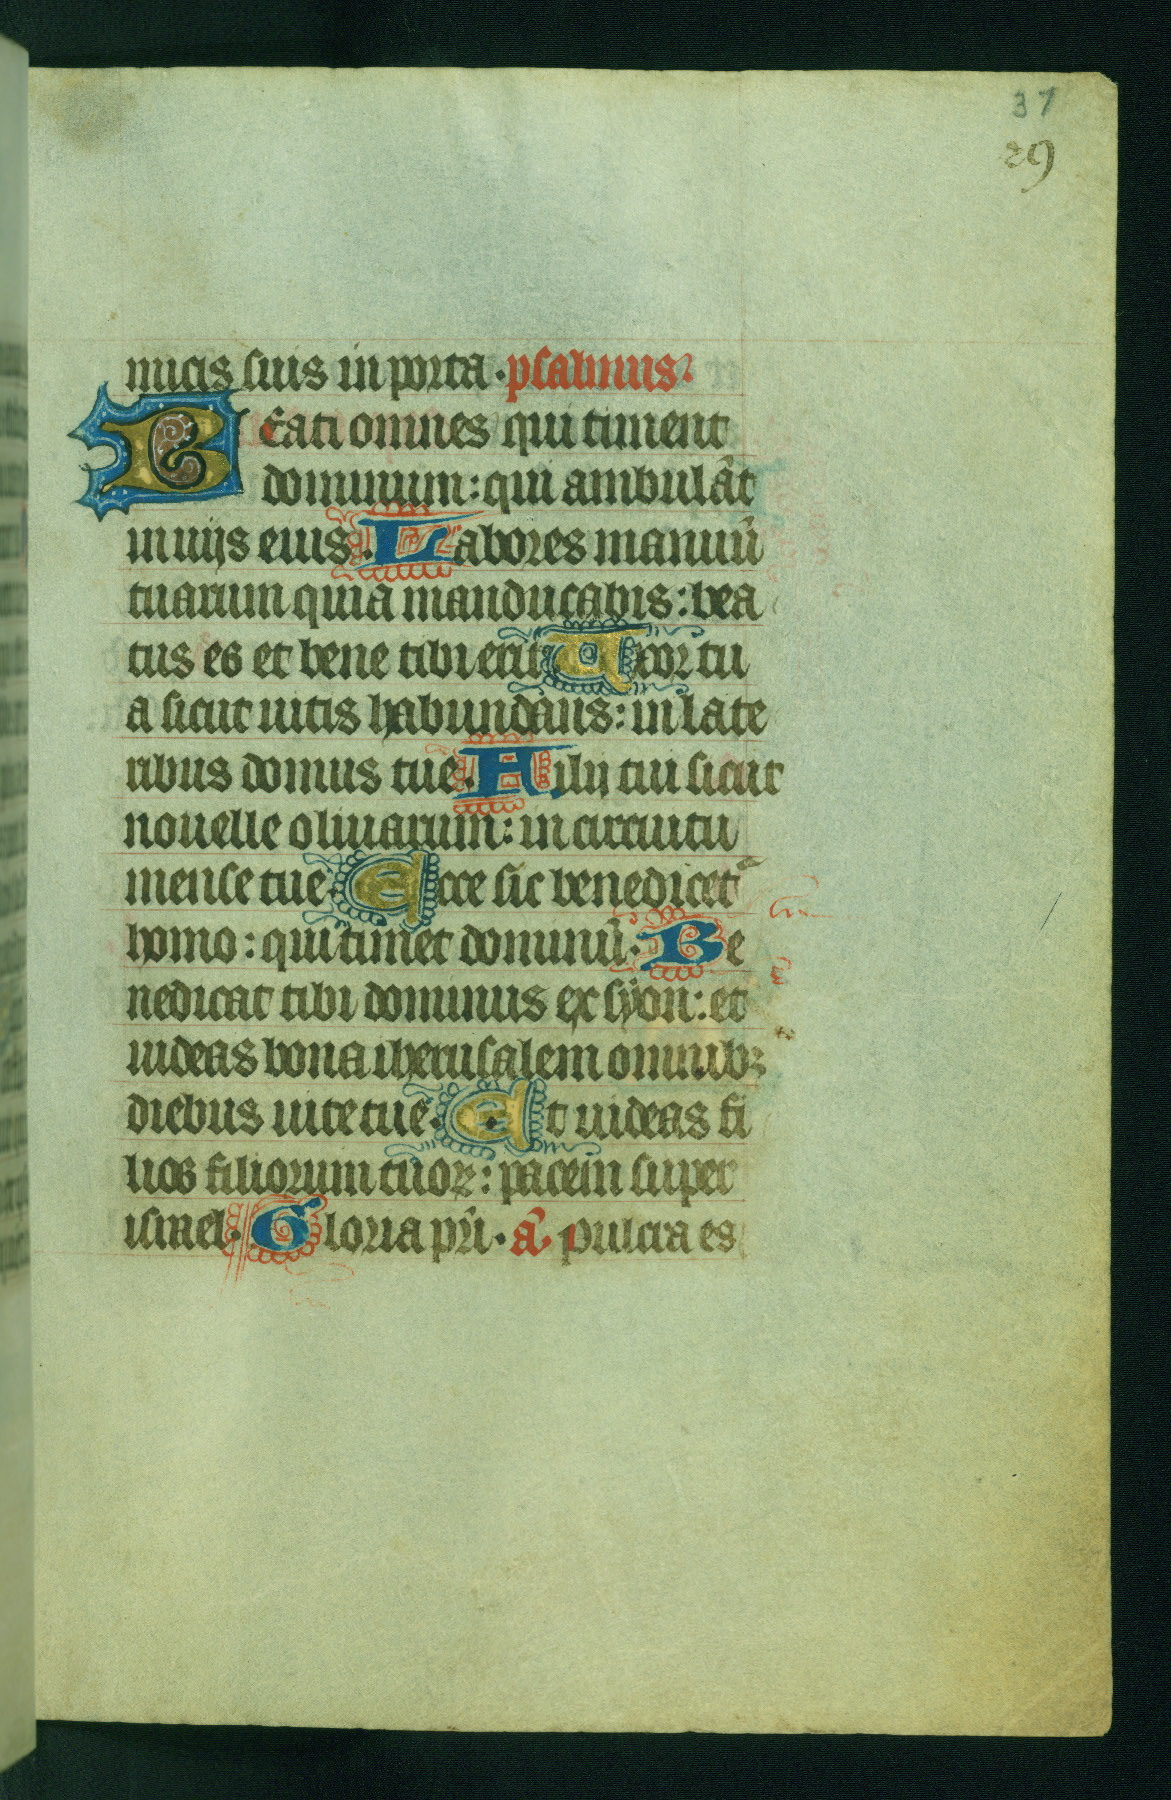 37
29
micis suis in porta. psalmus.
Beati omnes qui timent
dominum: qui ambulāt
in uijs eius. Labores manuū
tuarum quia manducabis: bea
tus es et bene tibi erit Uxor tu
a sicut uitis habundans: in late
ribus domus tue. Filij tui sicut
nouelle oliuarum: in circuitu
mense tue. Ecce sic benedicet᷑
homo: qui timet dominū. Be
nedicat tibi dominus ex syon: et
uideas bona iherusalem omnibꝫ
diebus uite tue. Et uideas fi
lios filiorum tuoꝝ: pacem super
israel. Gloria pr̄i. a᷑. Pulcra es